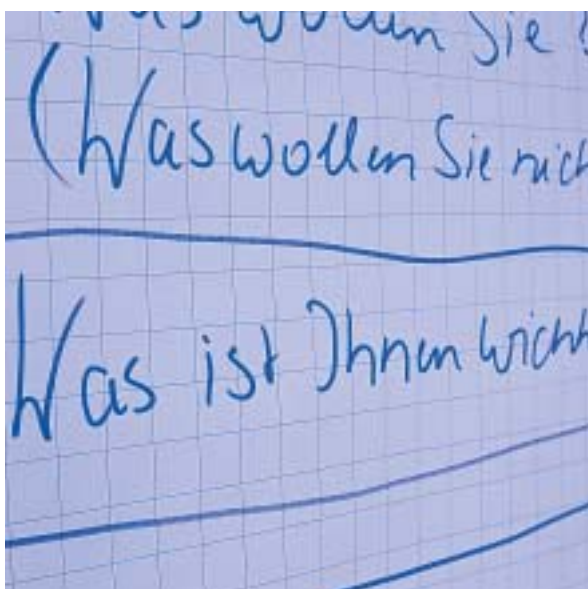 Was wollen Sie
(Was wollen Sie nich
Was ist Ihnen wicht